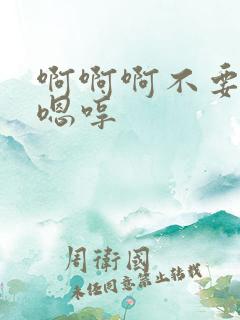 啊啊啊不要
嗯哼
周衛國
未经同意禁止转载